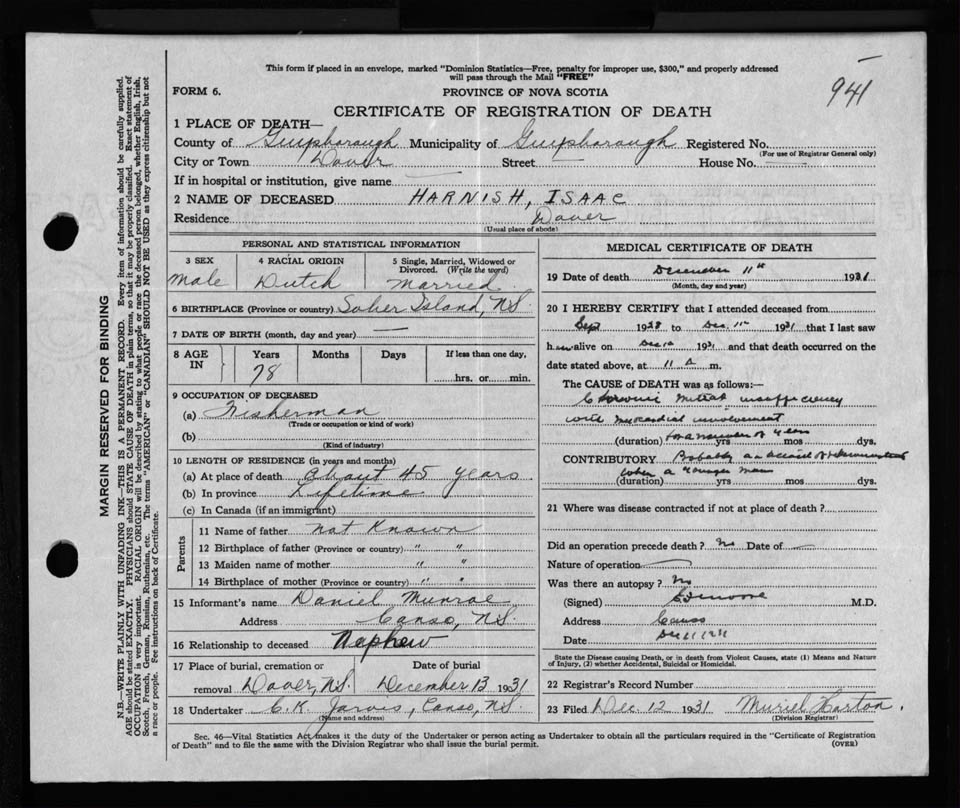 This form if placed in an envelope, marked "Dominion Statistics—Free, penalty for improper use, $300," and properly addressed
will pass through the Mail "FREE"
941
FORM 6.
PROVINCE OF NOVA SCOTIA
CERTIFICATE OF REGISTRATION OF DEATH
1 PLACE OF DEATH—
County of Guysborough Municipality of Guysborough Registered No.
(For use of Registrar General only)
City or Town Dover Street — House No. —
If in hospital or institution, give name —
2 NAME OF DECEASED HARNISH, ISAAC
Residence Dover
(Usual place of abode)
PERSONAL AND STATISTICAL INFORMATION
3 SEX 4 RACIAL ORIGIN 5 Single, Married, Widowed or
Divorced. (Write the word)
Male Dutch Married
6 BIRTHPLACE (Province or country) Sober Island, N.S.
7 DATE OF BIRTH (month, day and year) —
8 AGE IN Years Months Days If less than one day,
78 hrs. or min.
9 OCCUPATION OF DECEASED
(a) Fisherman
(Trade or occupation or kind of work)
(b)
(Kind of industry)
10 LENGTH OF RESIDENCE (in years and months)
(a) At place of death About 45 years
(b) In province Lifetime
(c) In Canada (if an immigrant)
Parents
11 Name of father Not Known
12 Birthplace of father (Province or country) " "
13 Maiden name of mother " "
14 Birthplace of mother (Province or country) " "
15 Informant's name Daniel Munroe
Address Canso, N.S.
16 Relationship to deceased Nephew
17 Place of burial, cremation or Date of burial
removal Dover, N.S. December 13 1931
18 Undertaker C.K. Jarvis, Canso, N.S.
(Name and address)
MEDICAL CERTIFICATE OF DEATH
19 Date of death December 11th 1931
(Month, day and year)
20 I HEREBY CERTIFY that I attended deceased from
Sept 1928 to Dec. 11th 1931 that I last saw
h im alive on Dec 10 1931 and that death occurred on the
date stated above, at 11 A m.
The CAUSE of DEATH was as follows:—
Chronic mitral insufficiency
with myocardial involvement
(duration) for a number of years yrs mos dys.
CONTRIBUTORY Probably an
when a younger man
(duration) yrs mos dys.
21 Where was disease contracted if not at place of death?
Did an operation precede death? No Date of —
Nature of operation —
Was there an autopsy? No
(Signed) Moore M.D.
Address Canso
Date Dec 11/31
State the Disease causing Death, or in death from Violent Causes, state (1) Means and Nature
of Injury, (2) whether Accidental, Suicidal or Homicidal.
22 Registrar's Record Number
23 Filed Dec 12 1931 Muriel Horton
(Division Registrar)
Sec. 46—Vital Statistics Act makes it the duty of the Undertaker or person acting as Undertaker to obtain all the particulars required in the "Certificate of Registration
of Death" and to file the same with the Division Registrar who shall issue the burial permit.
(OVER)
MARGIN RESERVED FOR BINDING
N.B.—WRITE PLAINLY WITH UNFADING INK—THIS IS A PERMANENT RECORD. Every item of information should be carefully supplied.
AGE should be stated EXACTLY. PHYSICIANS should STATE CAUSE OF DEATH in plain terms, so that it may be properly classified. Exact statement of
OCCUPATION is very important. RACIAL ORIGIN will be described by stating to what people or race the deceased person belonged, whether English, Irish,
Scotch, French, German, Russian, Ruthenian, etc. The terms "AMERICAN" or "CANADIAN" SHOULD NOT BE USED as they express citizenship but not
a race or people. See instructions on back of Certificate.